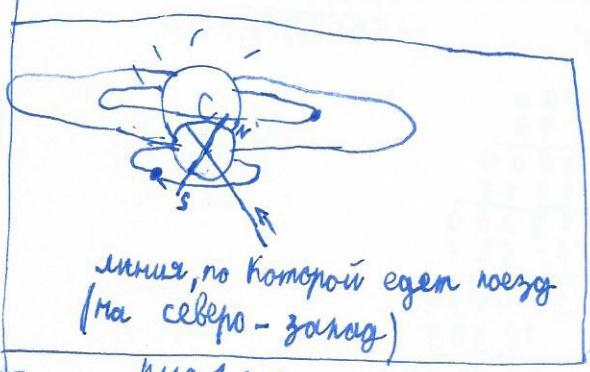 С
N
S
линия, по которой едет поезд
(на северо-запад)